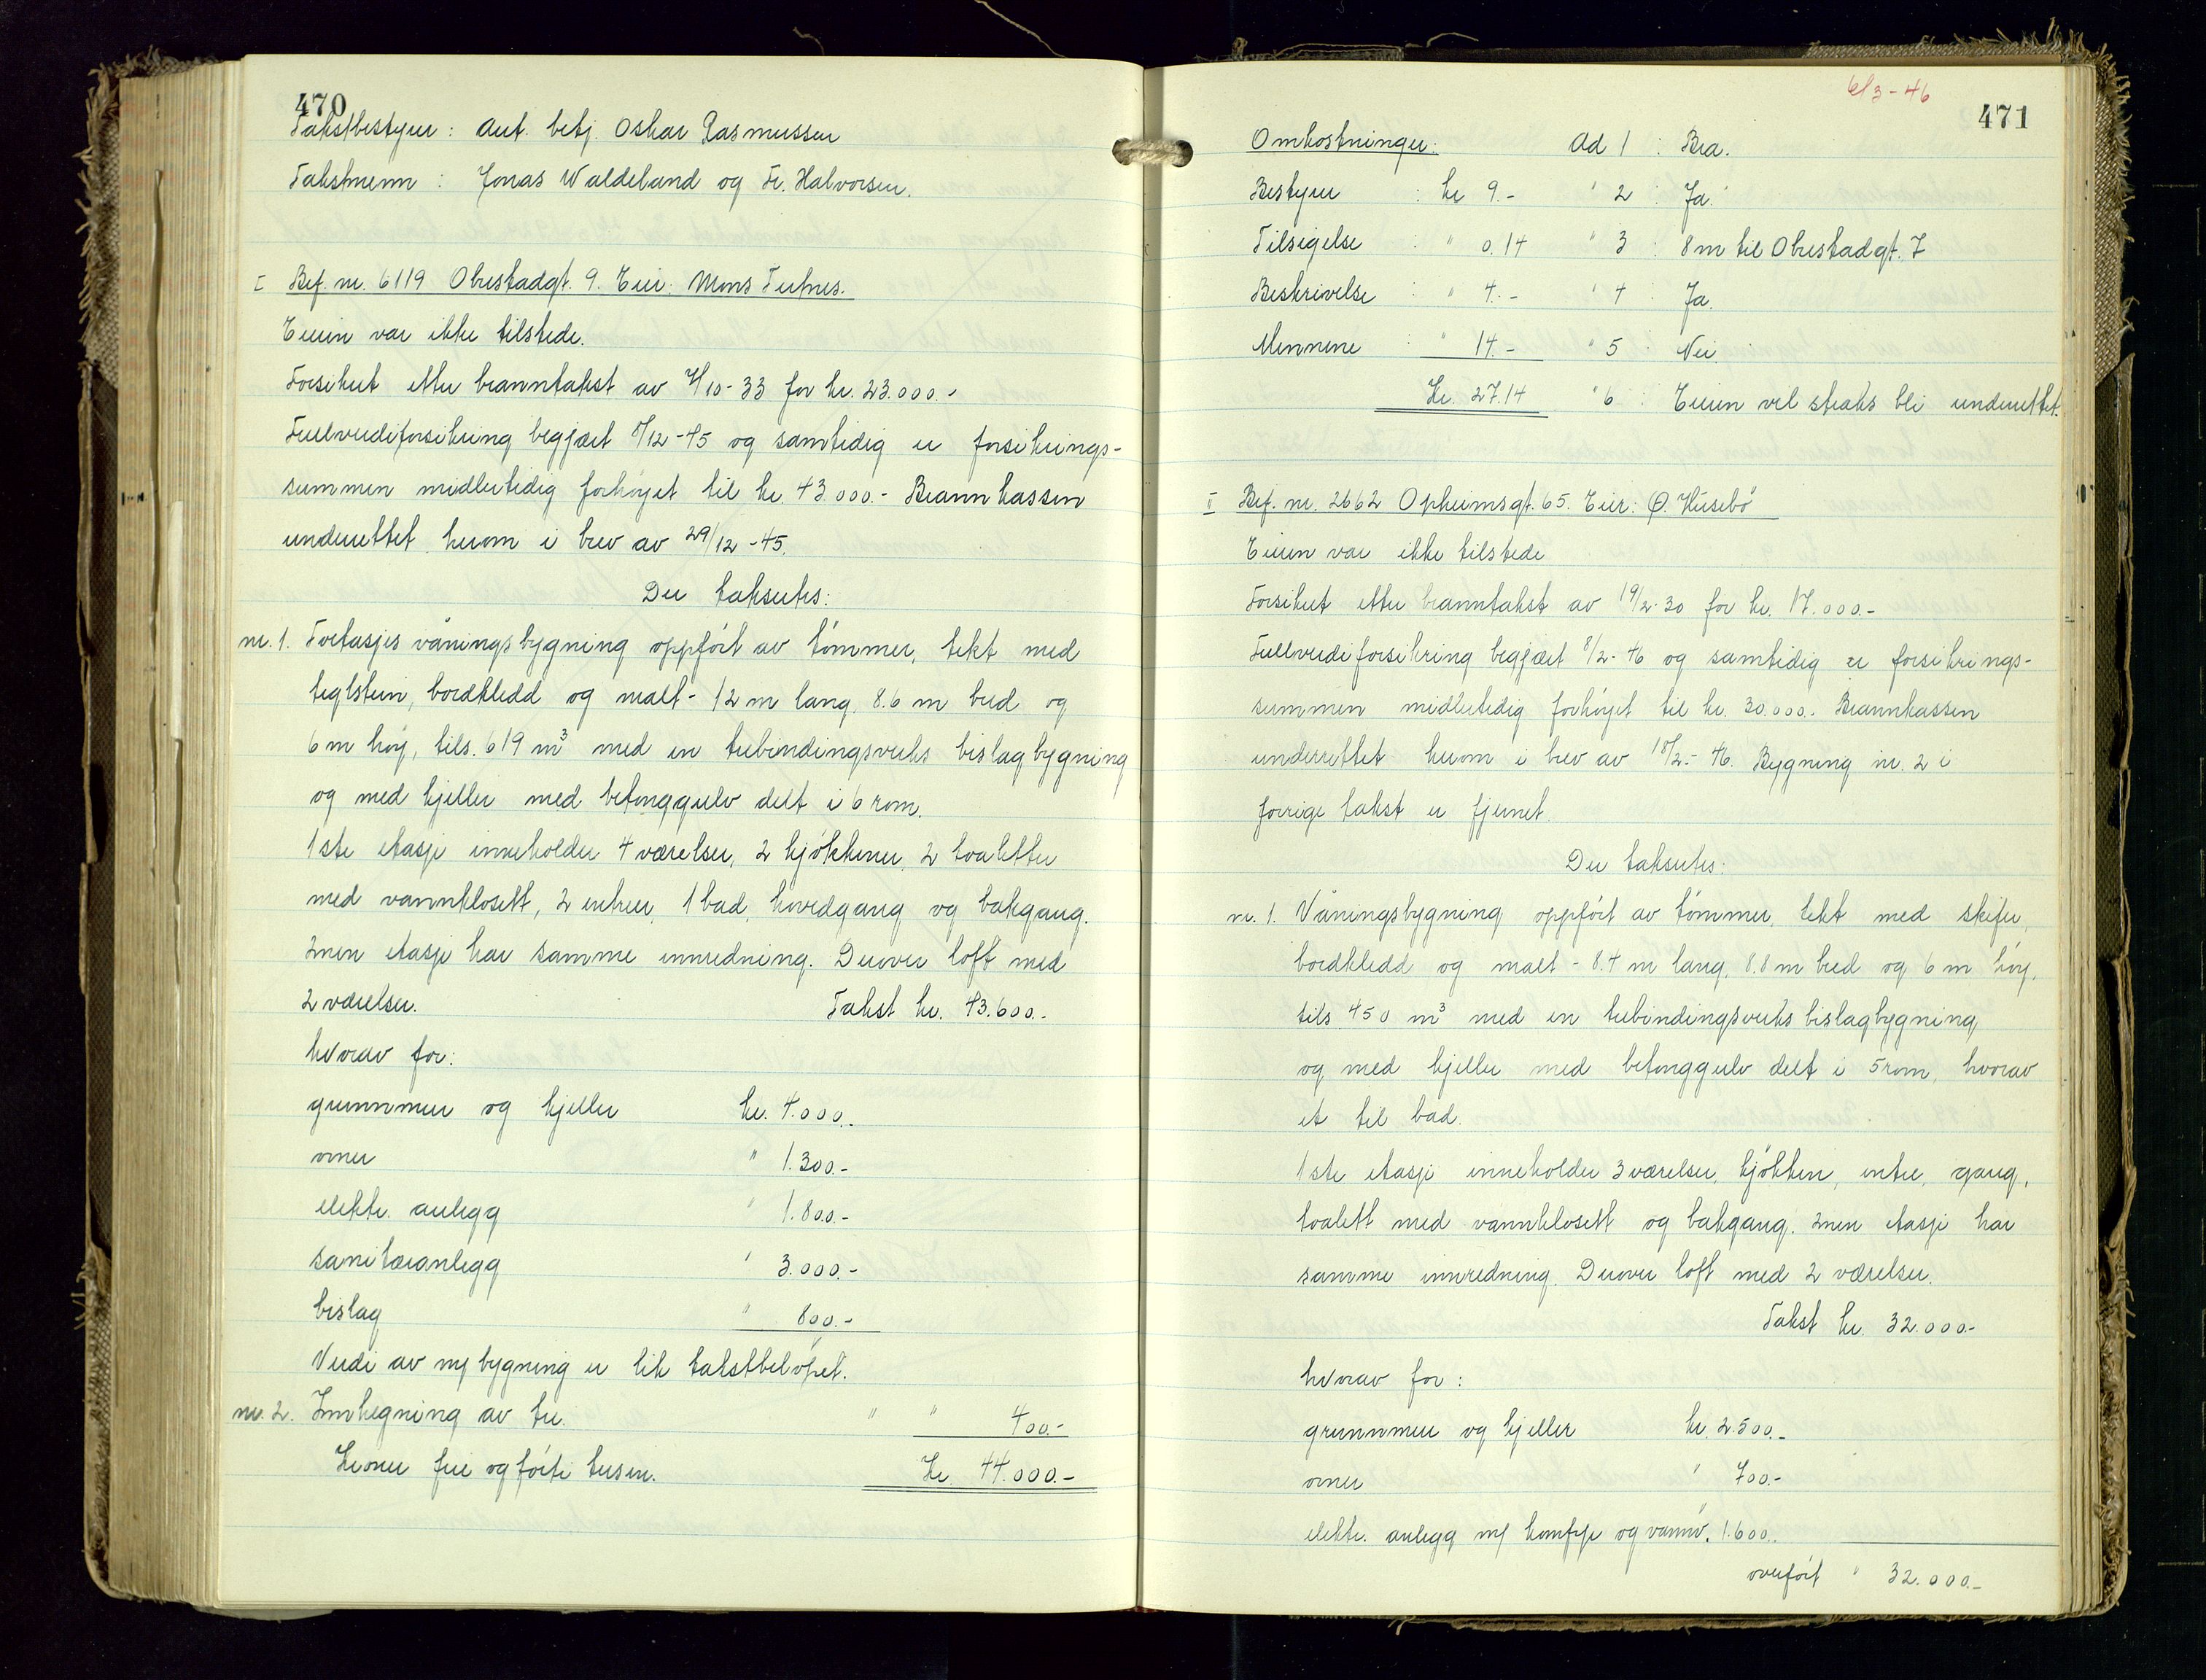 470
Takstbestyrer: Aut. betj. Oskar Rasmussen
Takstmenn: Jonas Waldeland og Fr. Halvorsen.
I Bef. nr. 6119 Obrestadgt. 9. Eier: Mons Tufnes.
Eieren var ikke tilstede.
Forsikret etter branntakst av 4/10-33 for kr. 23.000.-
Fullverdiforsikring begjært 8/12-45 og samtidig er forsikrings-
summen midlertidig forhöyet til kr. 43.000.- Brannkassen
underrettet herom i brev av 29/12-45.
Der takseres:
nr. 1. Toetasjes våningsbygning oppfört av tömmer, tekt med
teglstein, bordkledd og malt - 12 m lang, 8.6 m bred og
6 m höy, tils. 619 m³ med en trebindingsverks bislagbygning
og med kjeller med betonggulv delt i 6 rom.
1ste etasje inneholder 4 værelser, 2 kjökkener, 2 toaletter
med vannklosett, 2 entreer, 1 bad, hovedgang og bakgang.
2nen etasje har samme innredning. Derover loft med
2 værelser. Takst kr. 43.600.-
hvorav for:
grunnmur og kjeller kr. 4.000.-
ovner " 1.300.-
elektr. anlegg " 1.800.-
sanitæranlegg " 3.000.-
bislag " 800.-
Verdi av ny bygning er lik takstbelöpet.
nr. 2. Innhegning av tre. " " 400.-
Kroner fire og förti tusen. Kr. 44.000.-
6/3-46
471
Omkostninger: Ad 1 : Bra.
Bestyrer : kr 9.- " 2 : Ja.
Tilsigelse : " 0.14 " 3 : 8 m til Obrestadgt. 7
Beskrivelse : " 4.- " 4 : Ja.
Mennene : " 14.- " 5 : Nei
Kr. 27.14 " 6 : Eieren vil straks bli underrettet.
II Bef. nr. 2662 Opheimsgt. 65. Eier: Ø. Husebö
Eieren var ikke tilstede
Forsikret etter branntakst av 19/2-30 for kr. 17.000.-
Fullverdiforsikring begjært 8/2-46 og samtidig er forsikrings-
summen midlertidig forhöyet til kr. 30.000.- Brannkassen
underrettet herom i brev av 18/2-46. Bygning nr. 2 i
forrige takst er fjernet.
Der takseres:
nr. 1. Våningsbygning oppfört av tömmer, tekt med skifer,
bordkledd og malt - 8.4 m lang, 8.8 m bred og 6 m höy,
tils. 450 m³ med en trebindingsverks bislagbygning
og med kjeller med betonggulv delt i 5 rom, hvorav
et til bad.
1ste etasje inneholder 3 værelser, kjökken, entre, gang,
toalett med vannklosett og bakgang. 2nen etasje har
samme innredning. Derover loft med 2 værelser.
Takst kr. 32.000.-
hvorav for:
grunnmur og kjeller kr. 2.500.-
ovner " 700.-
elektr. anlegg m/ komfyr og vannv. " 1.600.-
overfört " 32.000.-